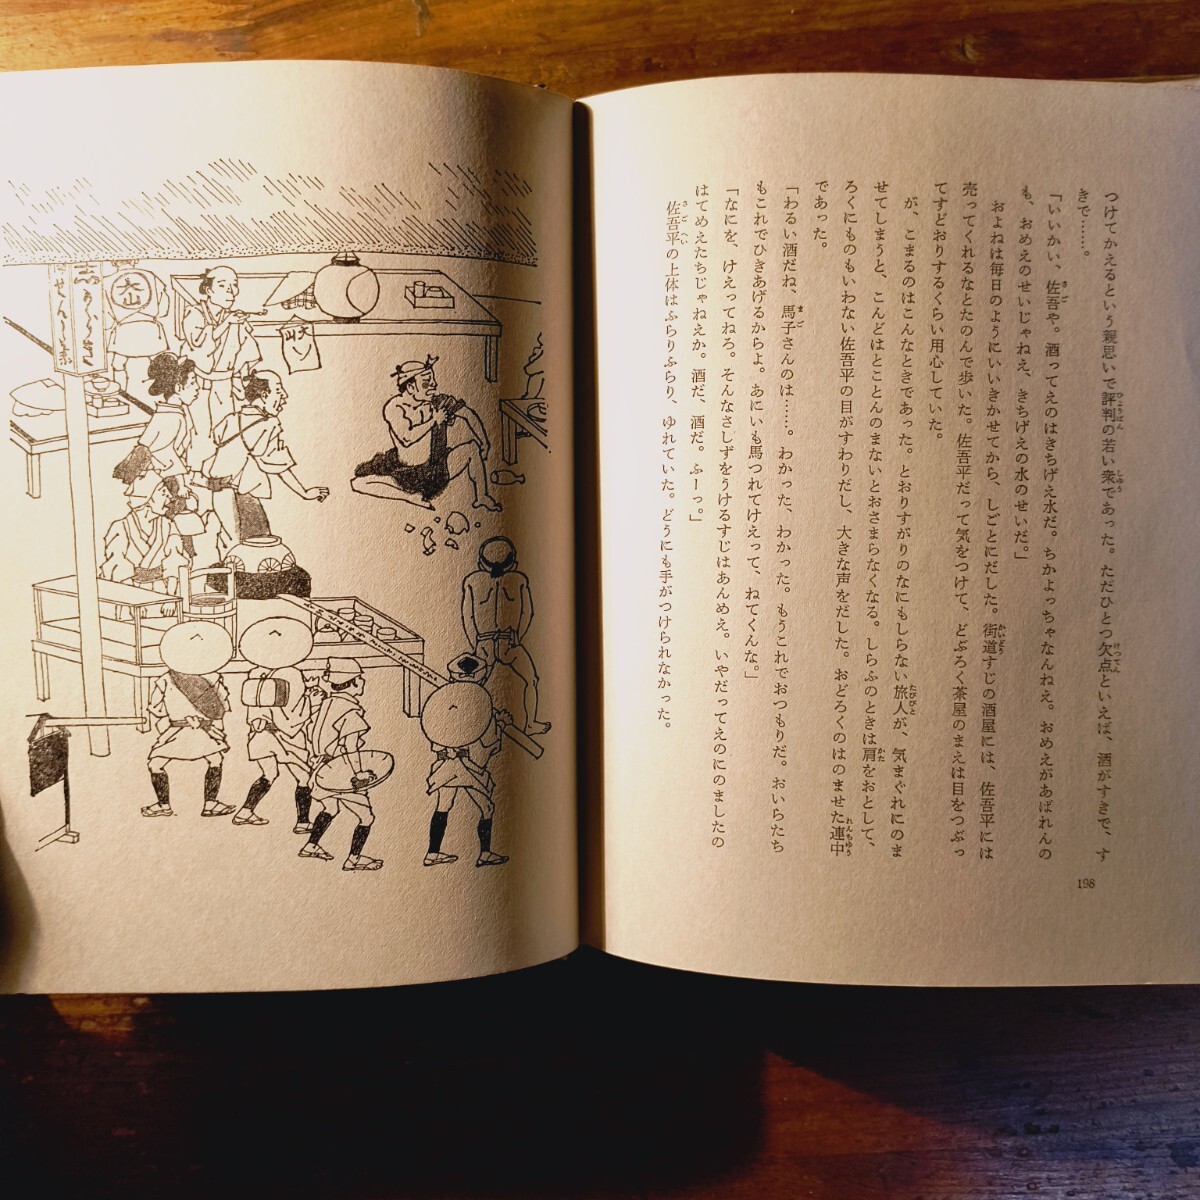 つけてかえるという親思いで評判の若い衆であった。ただひとつ欠点といえば、酒がすきで、す
きで……。
「いいかい、佐吾や。酒ってえのはきちげえ水だ。ちかよっちゃなんねえ。おめえがあばれんの
も、おめえのせいじゃねえ、きちげえの水のせいだ。」
およねは毎日のようにいいきかせてから、しごとにだした。街道すじの酒屋には、佐吾平には
売ってくれるなとたのんで歩いた。佐吾平だって気をつけて、どぶろく茶屋のまえは目をつぶっ
てすどおりするくらい用心していた。
が、こまるのはこんなときであった。とおりすがりのなにもしらない旅人が、気まぐれにのま
せてしまうと、こんどはとことんのまないとおさまらなくなる。しらふのときは肩をおとして、
ろくにものもいわない佐吾平の目がすわりだし、大きな声をだした。おどろくのはのませた連中
であった。
「わるい酒だね、馬子さんのは……。わかった、わかった。もうこれでおつもりだ。おいらたち
もこれでひきあげるからよ。あにいも馬つれてけえって、ねてくんな。」
「なにを、けえってねろ。そんなさしずをうけるすじはあんめえ。いやだってえのにのましたの
はてめえたちじゃねえか。酒だ、酒だ。ふーっ。」
佐吾平の上体はふらりふらり、ゆれていた。どうにも手がつけられなかった。
198
大山
大山